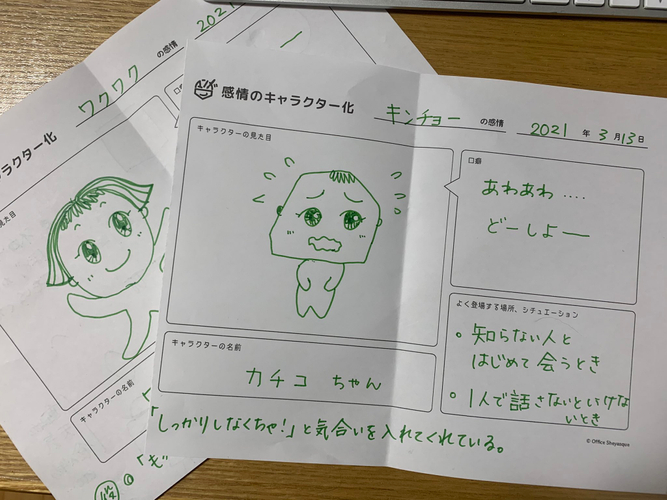 感情のキャラクター化
キンチョー の感情
2021 年 3 月 13 日
キャラクターの見た目
口癖
あわあわ‥‥
どーしよー
よく登場する場所、シチュエーション
• 知らない人と
はじめて会うとき
• 1人で話さないといけな
いとき
キャラクターの名前
カチコ ちゃん
「しっかりしなくちゃ!」と気合いを入れてくれている。
© Office Shayuuguu
ラクター化
ワクワク の感情
2021
口癖
見た目
キャラクターの名前